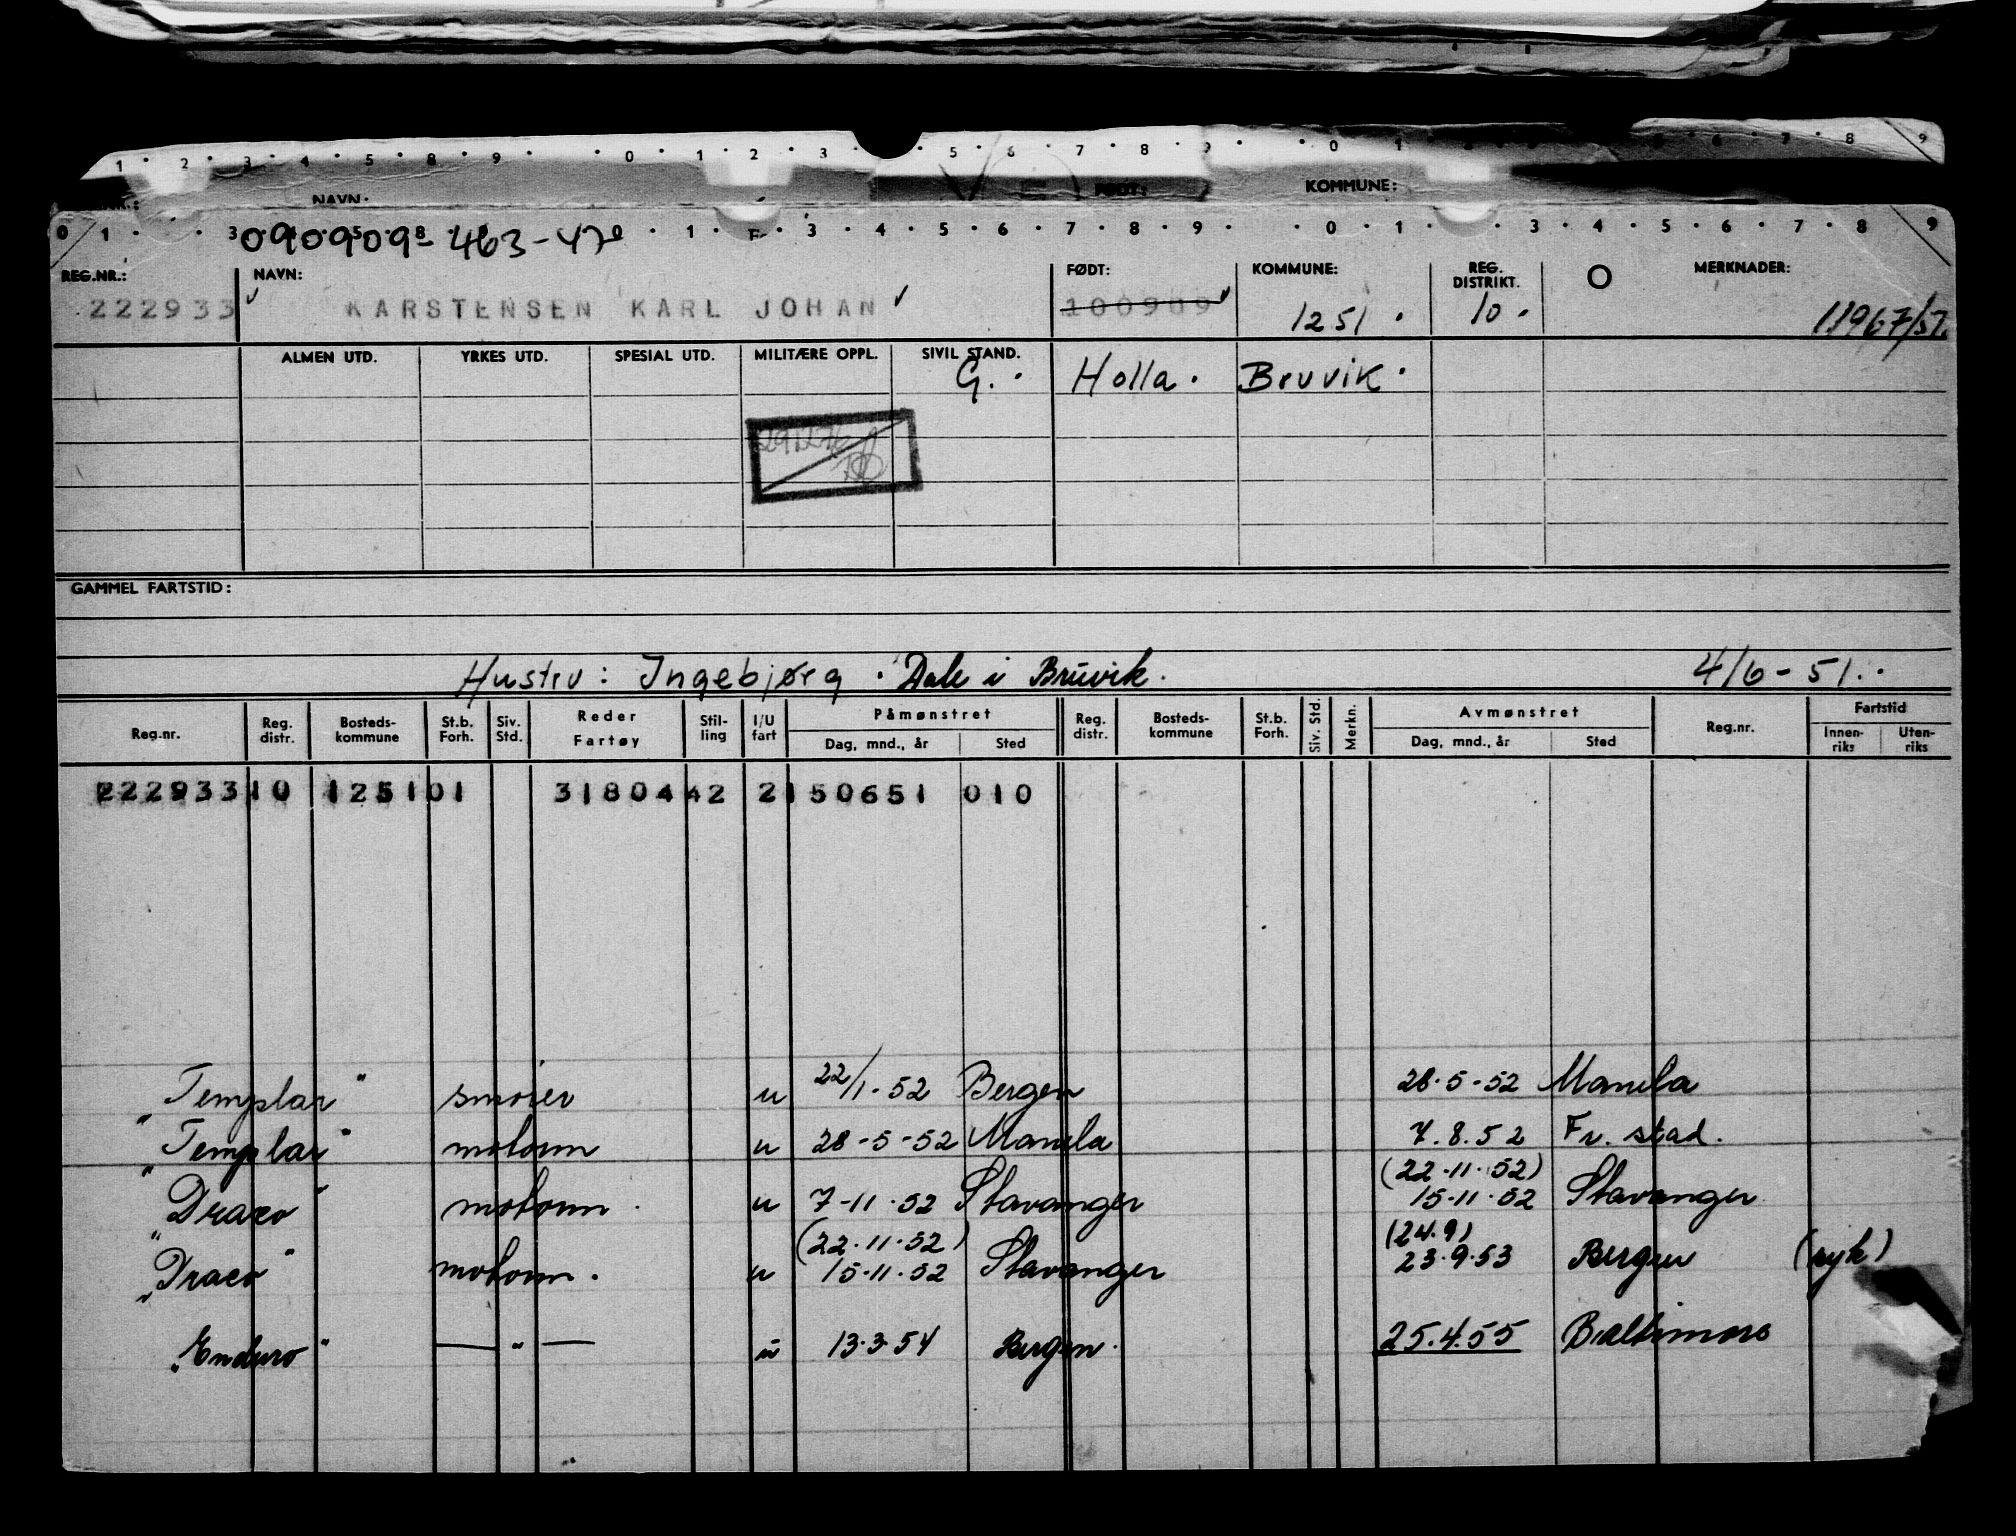 1 · 2 · 3 · 4 · 5 · 8 · 9 · · 0 · 1 · 2 · 3 · 5 · 6 · 7 · 8 · 9 · · 0 · 1 · 6 · 7 · 8 · 9
NAVN: FØDT: KOMMUNE:
0 1 · · 3 · 4 · 5 · 8 · 1 · · 3 · 4 · 5 · 6 · 7 · 8 · 9 · · 0 · 1 · · 3 · 4 · 5 · 6 · 7 · 8 · 9
090909-463-47
REG.NR.: NAVN: FØDT: KOMMUNE: REG. DISTRIKT. O MERKNADER:
222933 KARSTENSEN KARL JOHAN 100909 1251 · 10 · 11967/57
ALMEN UTD. YRKES UTD. SPESIAL UTD. MILITÆRE OPPL. SIVIL STAND.
G. · Holla · Bruvik ·
GAMMEL FARTSTID:
Hustru: Ingebjørg · Dale i Bruvik. 4/6-51. ·
Reg.nr. Reg. distr. Bosteds-kommune St.b. Forh. Siv. Std. Reder Fartøy Stil-ling I/U fart Påmønstret Dag, mnd., år Sted Reg. distr. Bosteds-kommune St.b. Forh. Siv. Std. Merkn. Avmønstret Dag, mnd., år Sted Reg.nr. Fartstid Innen-riks Uten-riks
222933 10 1251 01 31804 42 2 150651 010
"Templar" smører u 22/1-52 Bergen 28-5-52 Manila
"Templar" motorm u 28-5-52 Manila 7.8.52 Fr. stad.
(22-11-52)
"Draco" motorm. u 7-11-52 Stavanger 15-11-52 Stavanger
(22-11-52) (24.9)
"Draco" motorm. u 15-11-52 Stavanger 23.9.53 Bergen (syk)
"Enduro" — " — u 13.3.54 Bergen. 25.4.55 Baltimore